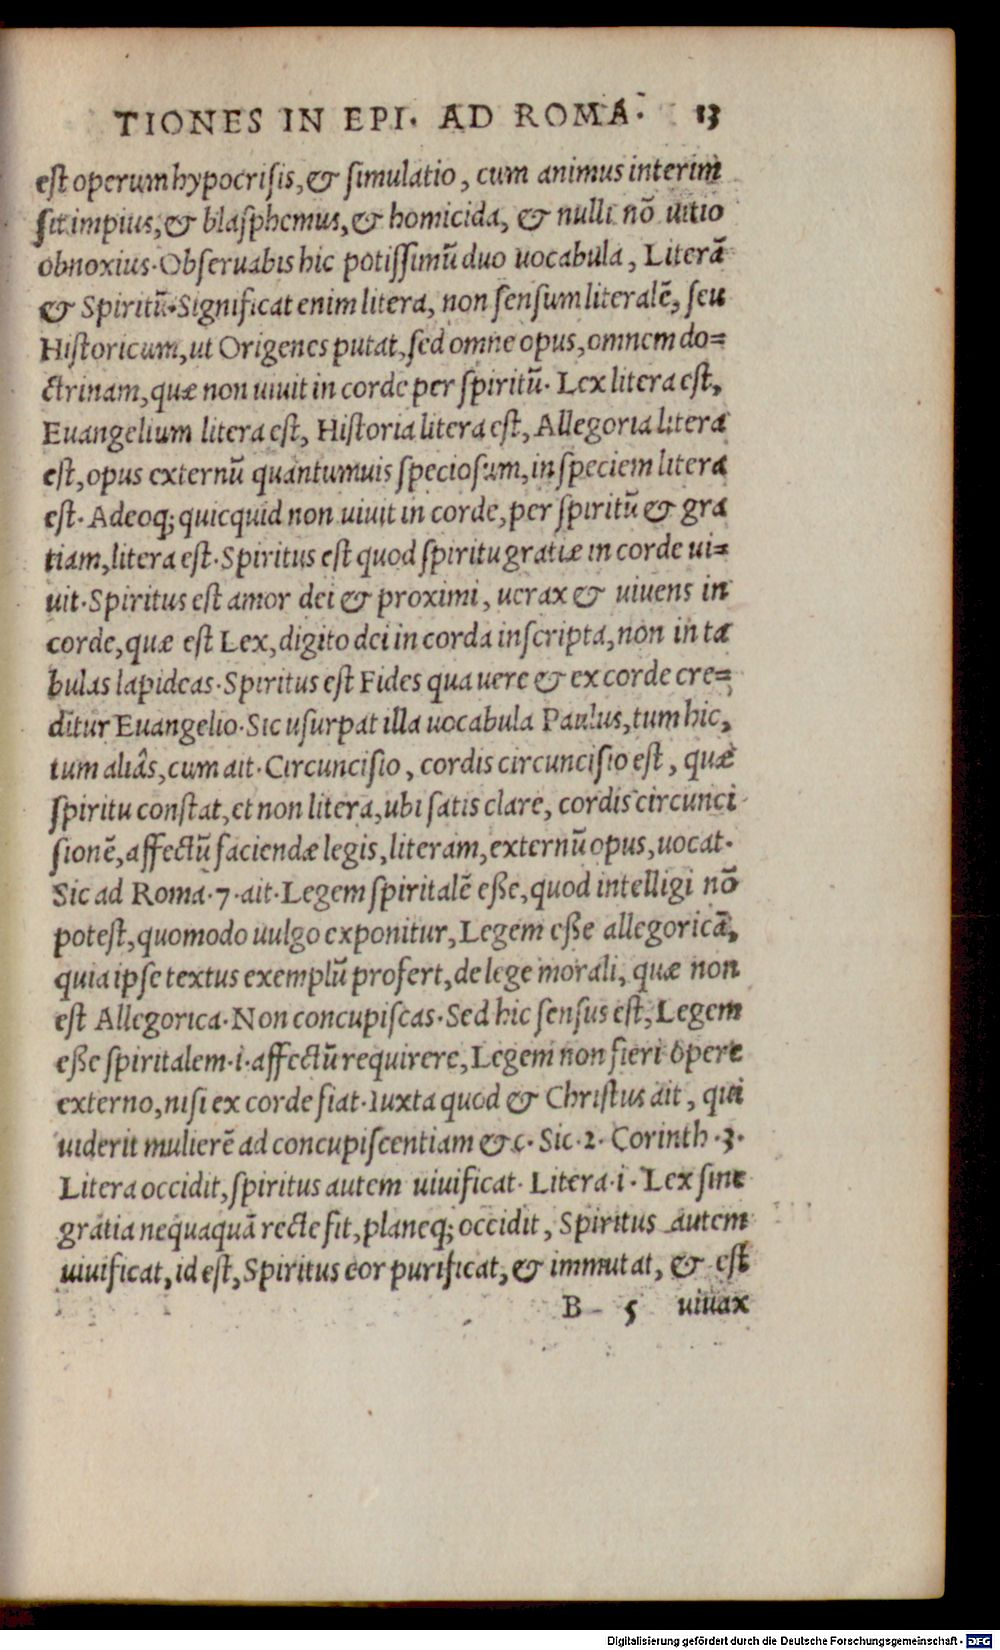 TIONES IN EPI. AD ROMA. 13
est operum hypocrisis, & simulatio, cum animus interim
sit impius, & blasphemus, & homicida, & nulli nō uitio
obnoxius. Obseruabis hic potissimū duo uocabula, Literā
& Spiritū. Significat enim litera, non sensum literalē, seu
Historicum, ut Origenes putat, sed omne opus, omnem do=
ctrinam, quæ non uiuit in corde per spiritū. Lex litera est,
Euangelium litera est, Historia litera est, Allegoria litera
est, opus externū quantumuis speciosum, in speciem litera
est. Adeoq; quicquid non uiuit in corde, per spiritū & gra
tiam, litera est. Spiritus est quod spiritu gratiæ in corde ui=
uit. Spiritus est amor dei & proximi, uerax & uiuens in
corde, quæ est Lex, digito dei in corda inscripta, non in ta
bulas lapideas. Spiritus est Fides qua uere & ex corde cre=
ditur Euangelio. Sic usurpat illa uocabula Paulus, tum hic,
tum aliâs, cum ait. Circuncisio, cordis circuncisio est, quæ
spiritu constat, et non litera, ubi satis clare, cordis circunci
sionē, affectū faciendæ legis, literam, externū opus, uocat.
Sic ad Roma. 7. ait. Legem spiritalē eße, quod intelligi nō
potest, quomodo uulgo exponitur, Legem eße allegoricā,
quia ipse textus exemplū profert, de lege morali, quæ non
est Allegorica. Non concupiscas. Sed hic sensus est, Legem
eße spiritalem .i. affectū requirere, Legem non fieri opere
externo, nisi ex corde fiat. Iuxta quod & Christus ait, qui
uiderit mulierē ad concupiscentiam &c. Sic .2. Corinth .3.
Litera occidit, spiritus autem uiuificat. Litera .i. Lex sine
gratia nequaquā recte fit, planeq; occidit, Spiritus autem
uiuificat, id est, Spiritus cor purificat, & immutat, & est
B 5 uiuax
Digitalisierung gefördert durch die Deutsche Forschungsgemeinschaft - DFG